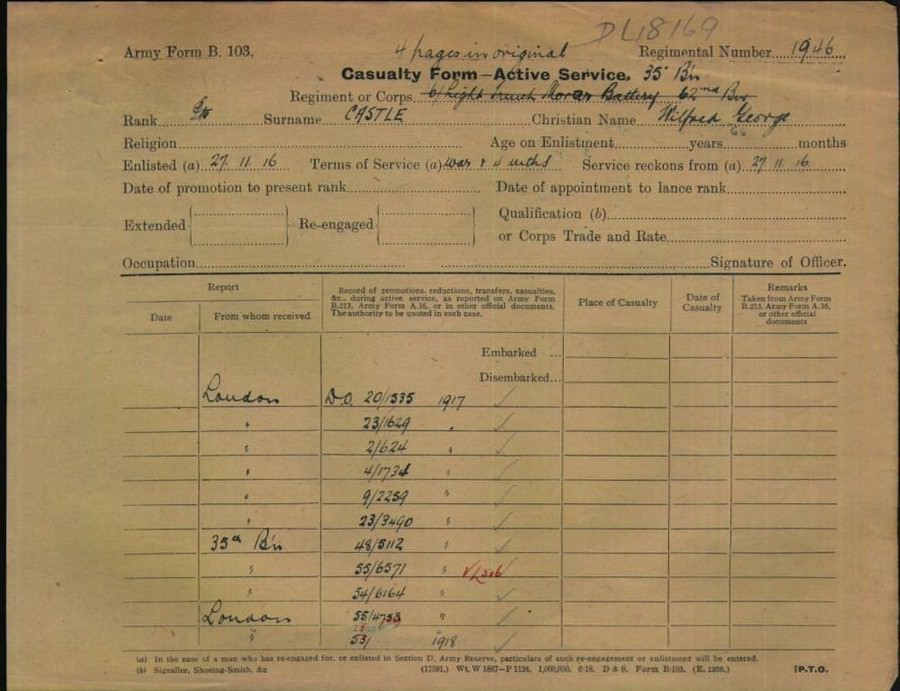 DL18169
Army Form B. 103. 4 pages in original Regimental Number 1946
Casualty Form—Active Service. 35 Bn
Regiment or Corps 6/Light Trench Mortar Battery 62nd Bn
Rank Pte Surname CASTLE Christian Name Wilfred George
Religion Age on Enlistment years months
Enlisted (a) 27 11 16 Terms of Service (a) war & 4 mths Service reckons from (a) 27 11 16
Date of promotion to present rank Date of appointment to lance rank
Extended Re-engaged Qualification (b)
or Corps Trade and Rate
Occupation Signature of Officer.
Report
Date From whom received
Record of promotions, reductions, transfers, casualties,
&c., during active service, as reported on Army Form
B.213, Army Form A.36, or in other official documents.
The authority to be quoted in each case.
Place of Casualty
Date of
Casualty
Remarks
Taken from Army Form
B.213, Army Form A.36,
or other official
documents
Embarked ...
Disembarked...
London D.O. 20/1535 1917 ✓
" 23/1629 " ✓
" 2/624 " ✓
" 4/1734 " ✓
" 9/2259 " ✓
" 23/3490 " ✓
35th Bn 48/5112 " ✓
" 55/6571 "
" 54/6164 " ✓
London 55/4753 " ✓
" 53/ 1918 ✓
(a) In the case of a man who has re-engaged for, or enlisted to Section D, Army Reserve, particulars of such re-engagement or enlistment will be entered.
(b) Signaller, Shoeing-Smith, &c (17591.) Wt. W 1887—P 1124. 1,000,000. 6-18. D & S. Form B/103. (E. 1256.) [P.T.O.